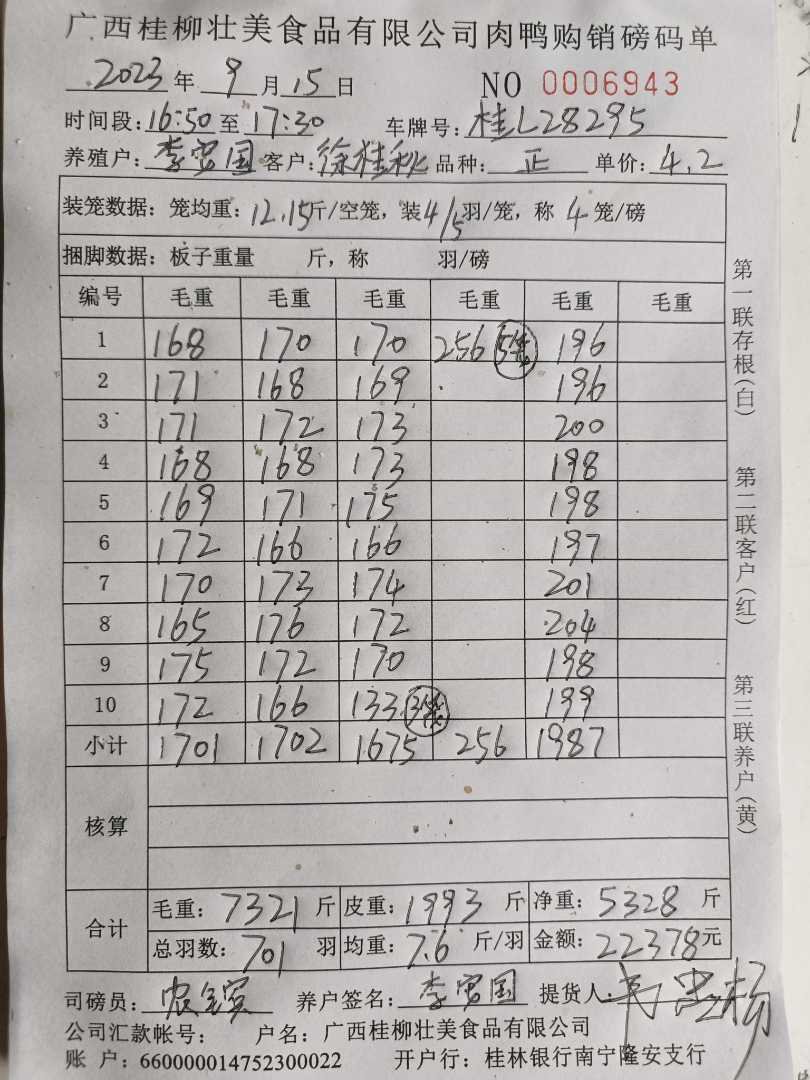 广西桂柳壮美食品有限公司肉鸭购销磅码单
2023年9月15日 NO 0006943
时间段:16:50至17:30 车牌号:桂L28295
养殖户:李宝国 客户:徐桂秋 品种:正 单价:4.2
装笼数据:笼均重:12.15斤/空笼,装4/5羽/笼,称4笼/磅
捆脚数据:板子重量 斤,称 羽/磅
编号 毛重 毛重 毛重 毛重 毛重 毛重
1 168 170 170 256 5笼 196
2 171 168 169 196
3 171 172 173 200
4 168 168 173 198
5 169 171 175 198
6 172 166 166 197
7 170 173 174 201
8 165 176 172 204
9 175 172 170 198
10 172 166 133 3笼 199
小计 1701 1702 1675 256 1987
核算
合计 毛重:7321斤 皮重:1993斤 净重:5328斤
总羽数:701羽 均重:7.6斤/羽 金额:22378元
司磅员: 养户签名:李宝国 提货人:
公司汇款帐号: 户名:广西桂柳壮美食品有限公司
账 户:660000014752300022 开户行:桂林银行南宁隆安支行
第一联存根(白)
第二联客户(红)
第三联养户(黄)